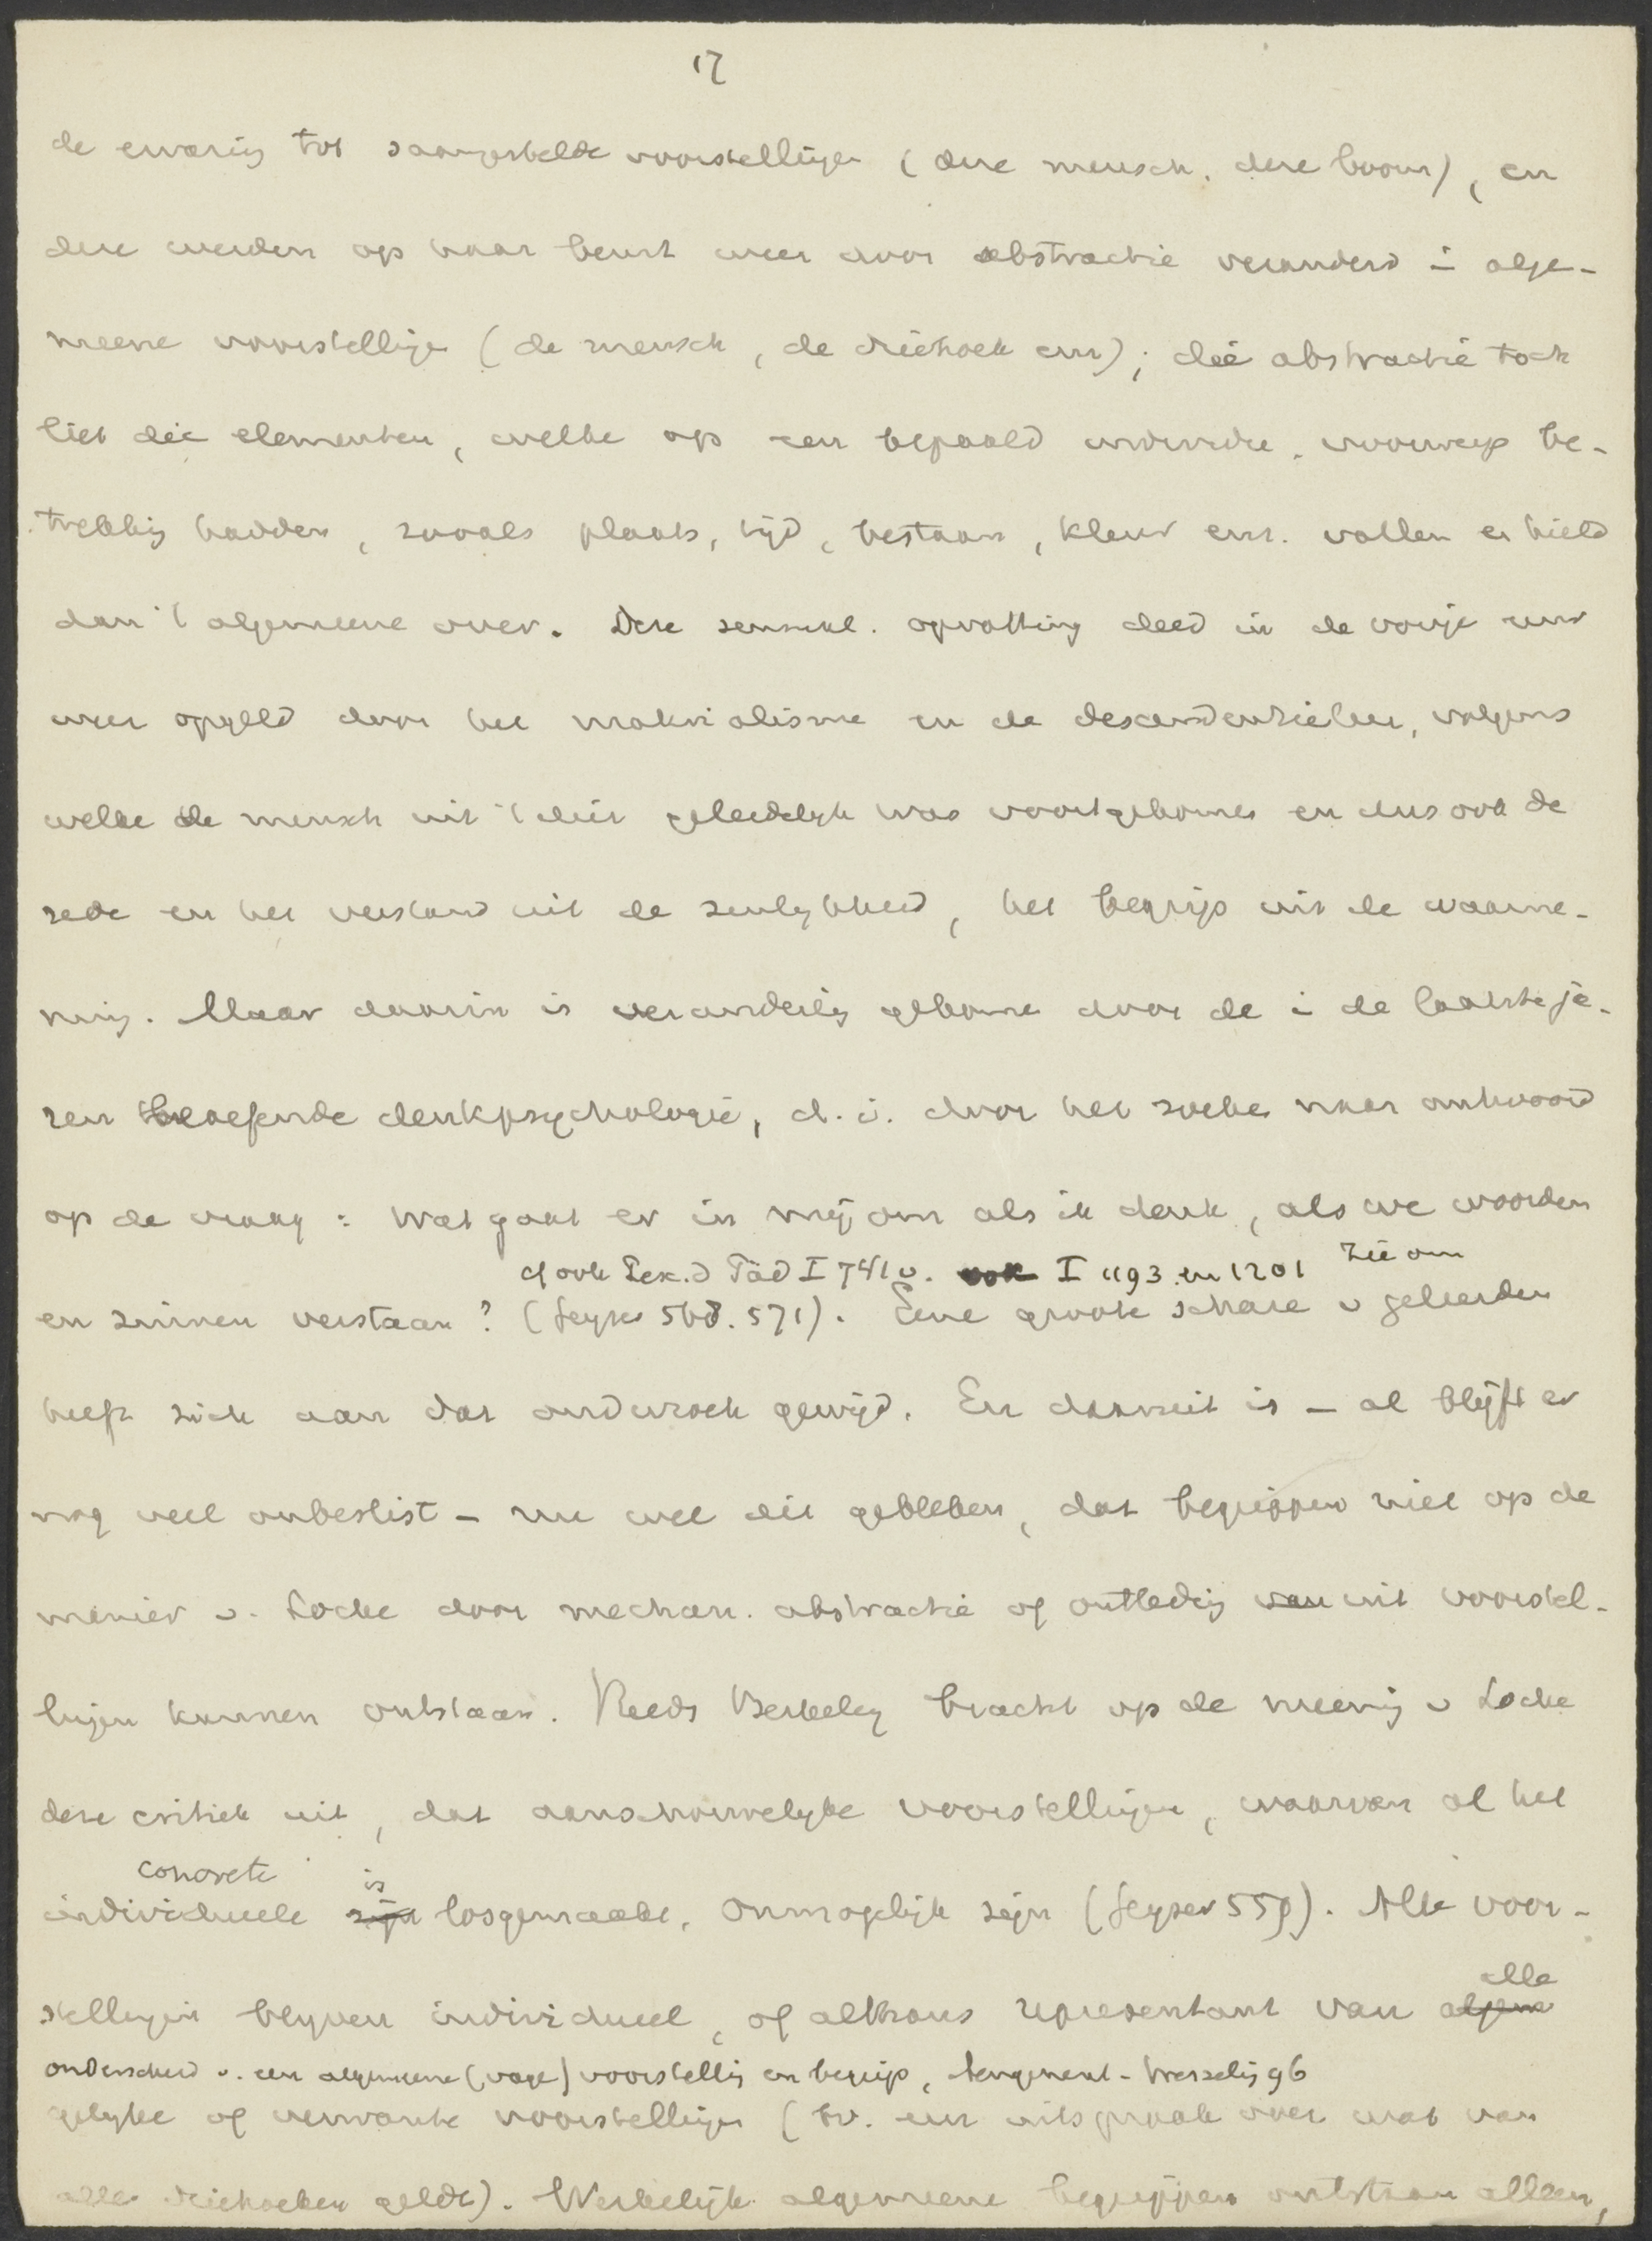 17
de ervaring tot saamgestelde voorstellingen (deze mensch, deze boom), en
deze werden op haar beurt weer door abstractie veranderd in alge-
meene voorstellingen (de mensch, de driehoek enz); die abstractie toch
liet die elementen, welke op een bepaald individu. voorwerp be-
trekking hadden, zooals plaats, tijd, bestaan, kleur enz. vallen en hield
dan 't algemeene over. Deze sensual. opvatting deed in de vorige eeuw
weer opgeld door het materialisme en de descendentieleer, volgens
welke de mensch uit 't dier geleidelyk was voortgekomen en dus ook de
rede en het verstand uit de zinlykheid, het begrip uit de waarne-
ming. Maar daarin is verandering gekomen door de in de laatste ja-
ren beoefende denkpsychologie, d. i. door het zoeken naar antwoord
op de vraag: wat gaat er in mij om als ik denk, als we woorden
cf ook Lex. d Päd I 741 v. I 1193 en 1201 zie om
en zinnen verstaan? (Geyser 568. 571). Eene groote schare v geleerden
heeft zich aan dat onderzoek gewijd. En daaruit is - al blijft er
nog veel onbeslist - nu wel dit gebleken, dat begrippen niet op de
manier v. Locke door mechan. abstractie of ontleding van uit voorstel-
lingen kunnen ontstaan. Reeds Berkeley bracht op de meening v Locke
deze critiek uit, dat aanschouwelyke voorstellingen, waarvan al het
concrete is
individueele zijn losgemaakt, onmogelijk zijn (Geyser 559). Alle voor-
alle
stellingen blyven individueel, of althans representant van algem
onderscheid v. een algemeene (vage) voorstelling en begrip, Jongeneel-Wesseling 96
gelyke of verwante voorstellingen (bv. een uitspraak over wat van
alle driehoeken geldt). Werkelijk algemeene begrippen ontstaan alleen,